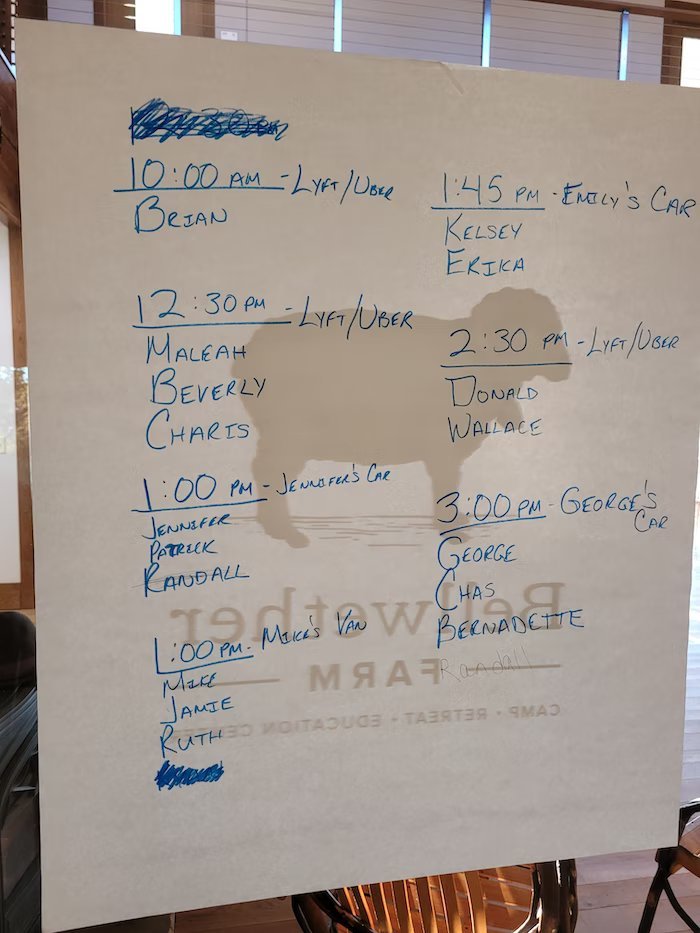 10:00 AM - LYFT/UBER
BRIAN
12:30 PM - LYFT/UBER
MALEAH
BEVERLY
CHARIS
1:00 PM - JENNIFER'S CAR
JENNIFER
PATRICK
RANDALL
1:00 PM - MIKE'S VAN
MIKE
JAMIE
RUTH
1:45 PM - EMILY'S CAR
KELSEY
ERIKA
2:30 PM - LYFT/UBER
DONALD
WALLACE
3:00 PM - GEORGE'S
CAR
GEORGE
CHAS
BERNADETTE
Randall
Bellwether
FARM
CAMP • RETREAT • EDUCATION CENTER